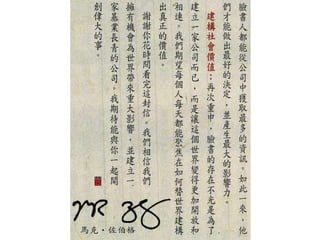 臉書人都能從公司中獲取最多的資訊。如此一來，他
們才能做出最好的決定，並產生最大的影響力。
建構社會價值：再次重申，臉書的存在不光是為了
建立一家公司而已，而是讓這個世界變得更加開放和
相連。我們期望每個人每天都能聚焦在如何替世界建構
出真正的價值。
謝謝你花時間看完這封信。我們相信我們
擁有機會為世界帶來重大影響，並建立一
家基業長青的公司。我期待能與你一起開
創偉大的事。
馬克·佐伯格